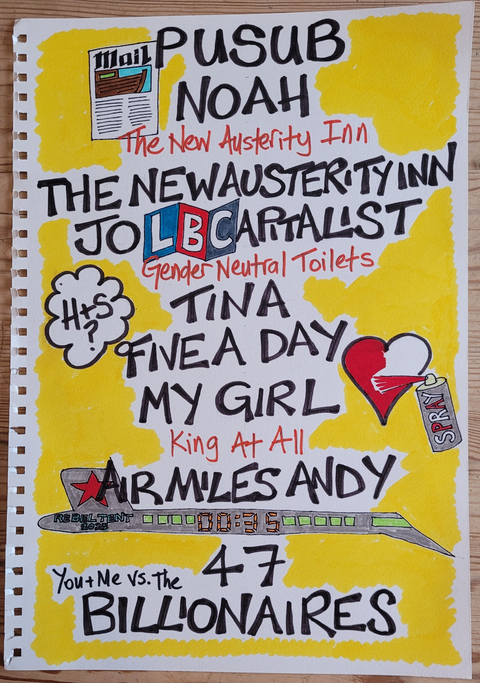 Mail PUSUB
NOAH
The New Austerity Inn
THE NEW AUSTERITY INN
JO LBCAPITALIST
Gender Neutral Toilets
H+S
?
TINA
FIVE A DAY
MY GIRL
SPRAY
King At All
AIR MILES ANDY
REBEL TENT
2025
00:35
47
You + Me vs. The
BILLIONAIRES